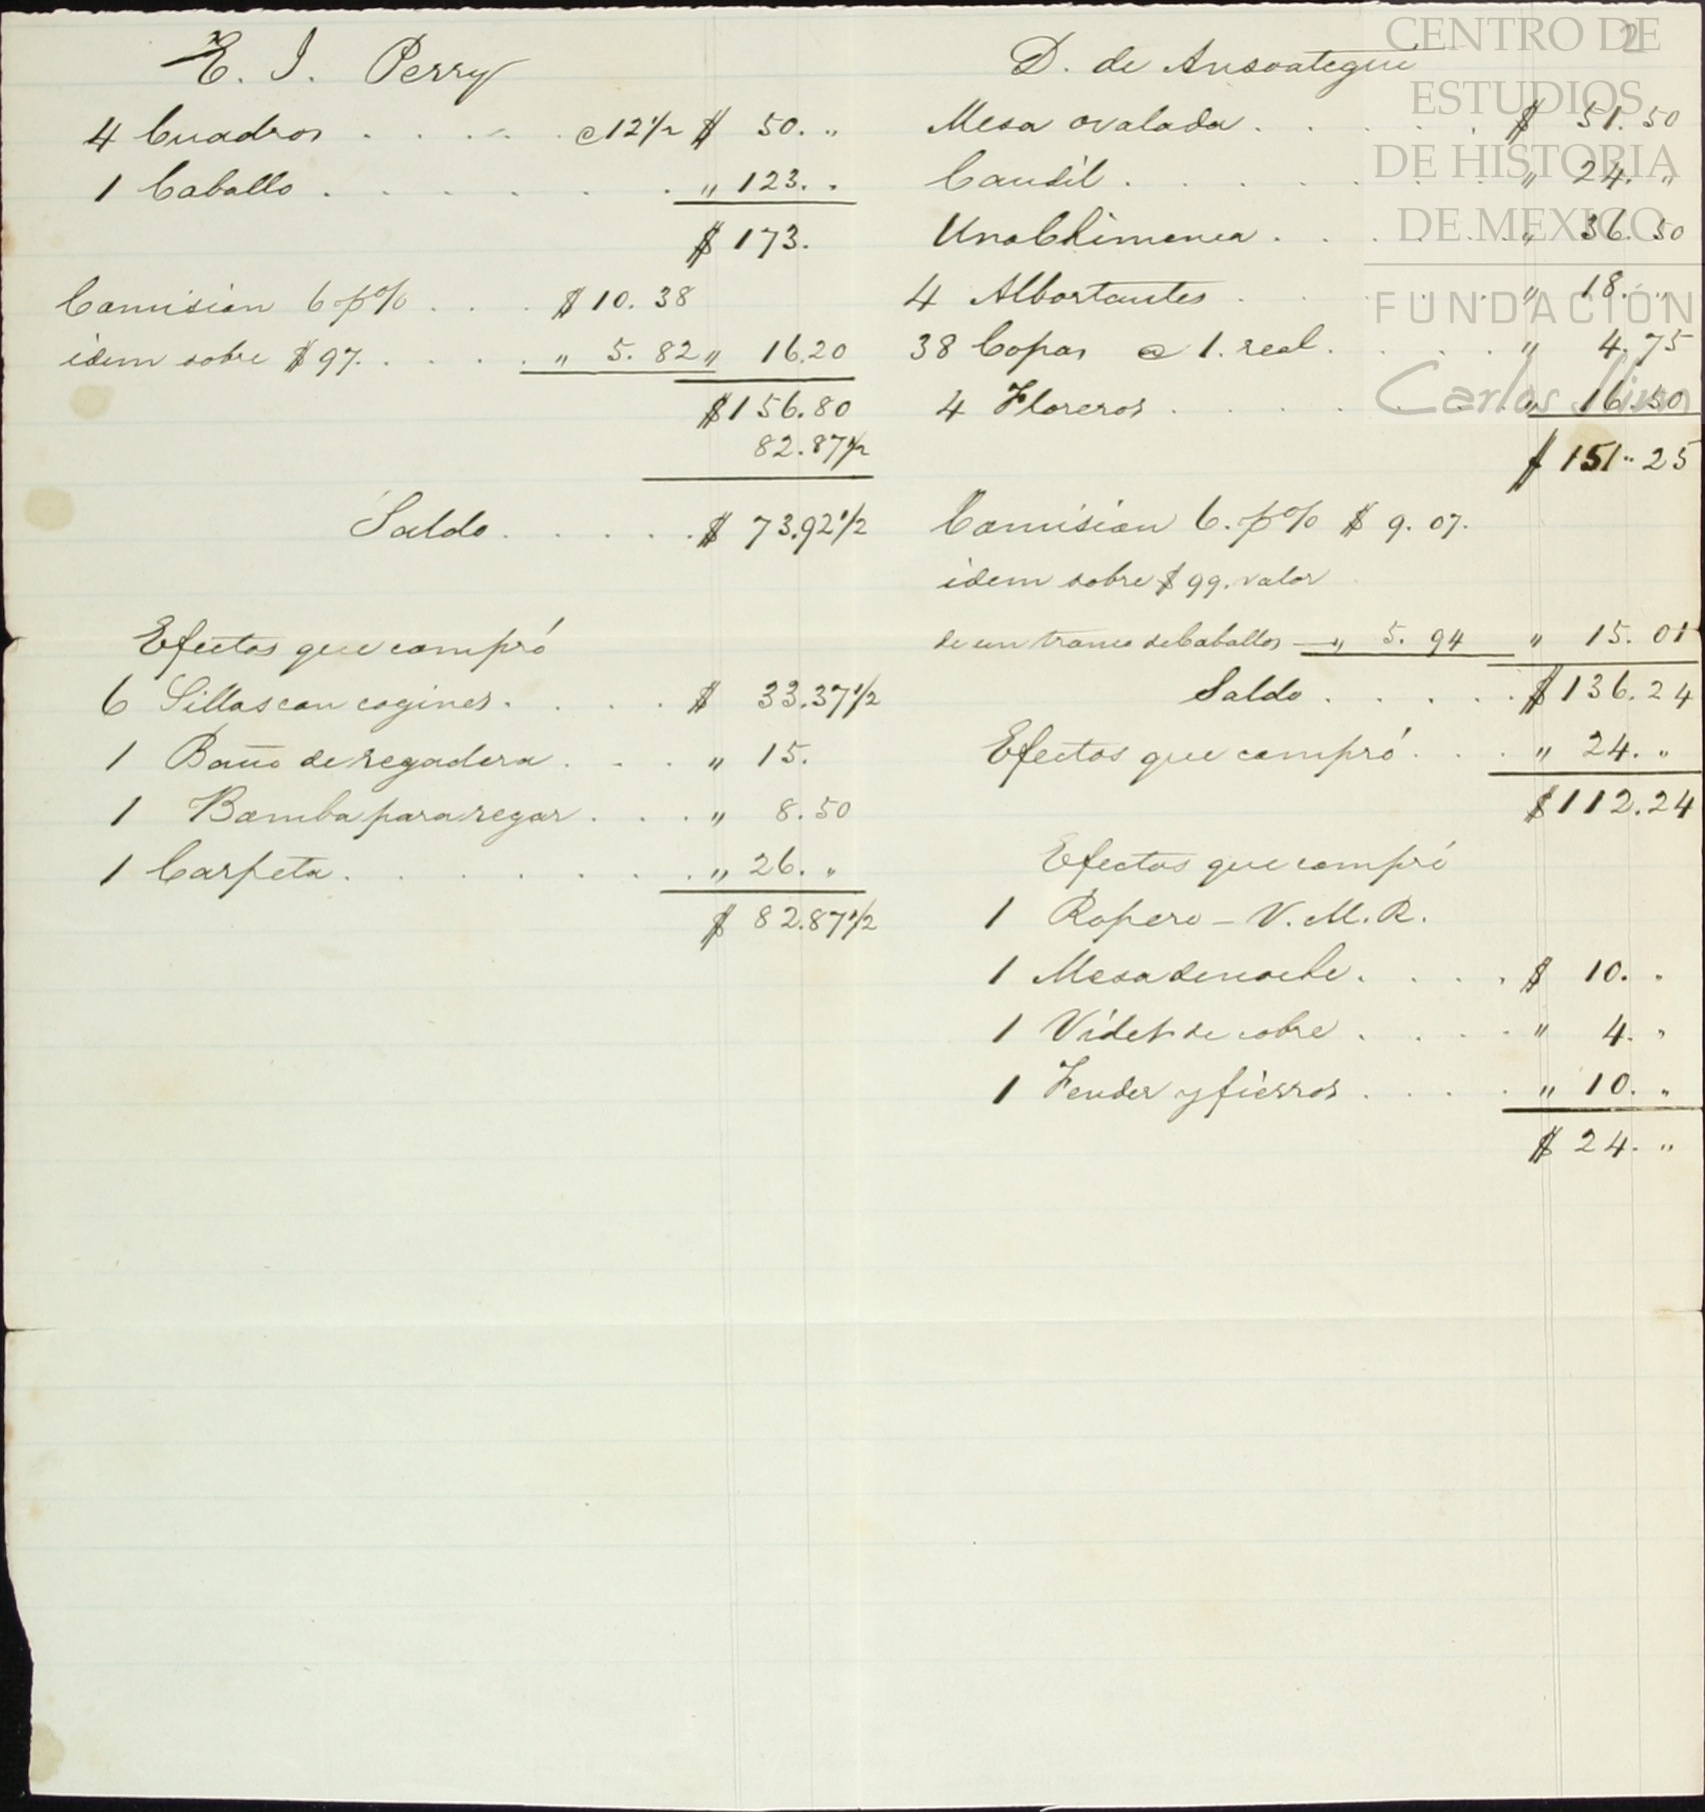 E. J. Perry
4 Cuadros . . . . . @ 12 1/2 $ 50. "
1 Caballo . . . . . . . " 123. "
$ 173.
Comision 6 p% . . . $ 10. 38
idem sobre $ 97. . . . . " 5. 82 " 16.20
$ 156.80
82.87 1/2
Saldo . . . . . $ 73.92 1/2
Efectos que compró
6 Sillas con cogines . . . . $ 33.37 1/2
1 Baño de regadera . . . " 15.
1 Bomba para regar . . . " 8.50
1 Carpeta . . . . . . . " 26. "
$ 82.87 1/2
D. de Ansoategui
Mesa ovalada . . . . . $ 51. 50
Candil . . . . . . . " 24. "
Una Chimenea . . . . . " 36. 50
4 Albortantes . . . . . " 18. "
38 Copas @ 1. real . . . . " 4. 75
4 Floreros . . . . . . " 16. 50
$ 151 " 25
Comision 6. p% $ 9. 07.
idem sobre $ 99. valor
de un tronco de Caballos — " 5. 94 " 15. 01
Saldo . . . . . $ 136. 24
Efectos que compró . . . " 24. "
$ 112. 24
Efectos que compró
1 Ropero - V. M. R.
1 Mesa de noche . . . . $ 10. "
1 Videt de cobre . . . . " 4. "
1 Fender y fierros . . . . " 10. "
$ 24. "
2
CENTRO DE
ESTUDIOS
DE HISTORIA
DE MEXICO
FUNDACIÓN
Carlos Slim